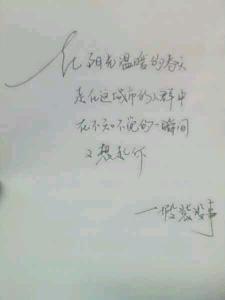 在阳光温暖的春天
走在这城市的人群中
在不知不觉的一瞬间
又想起你
一